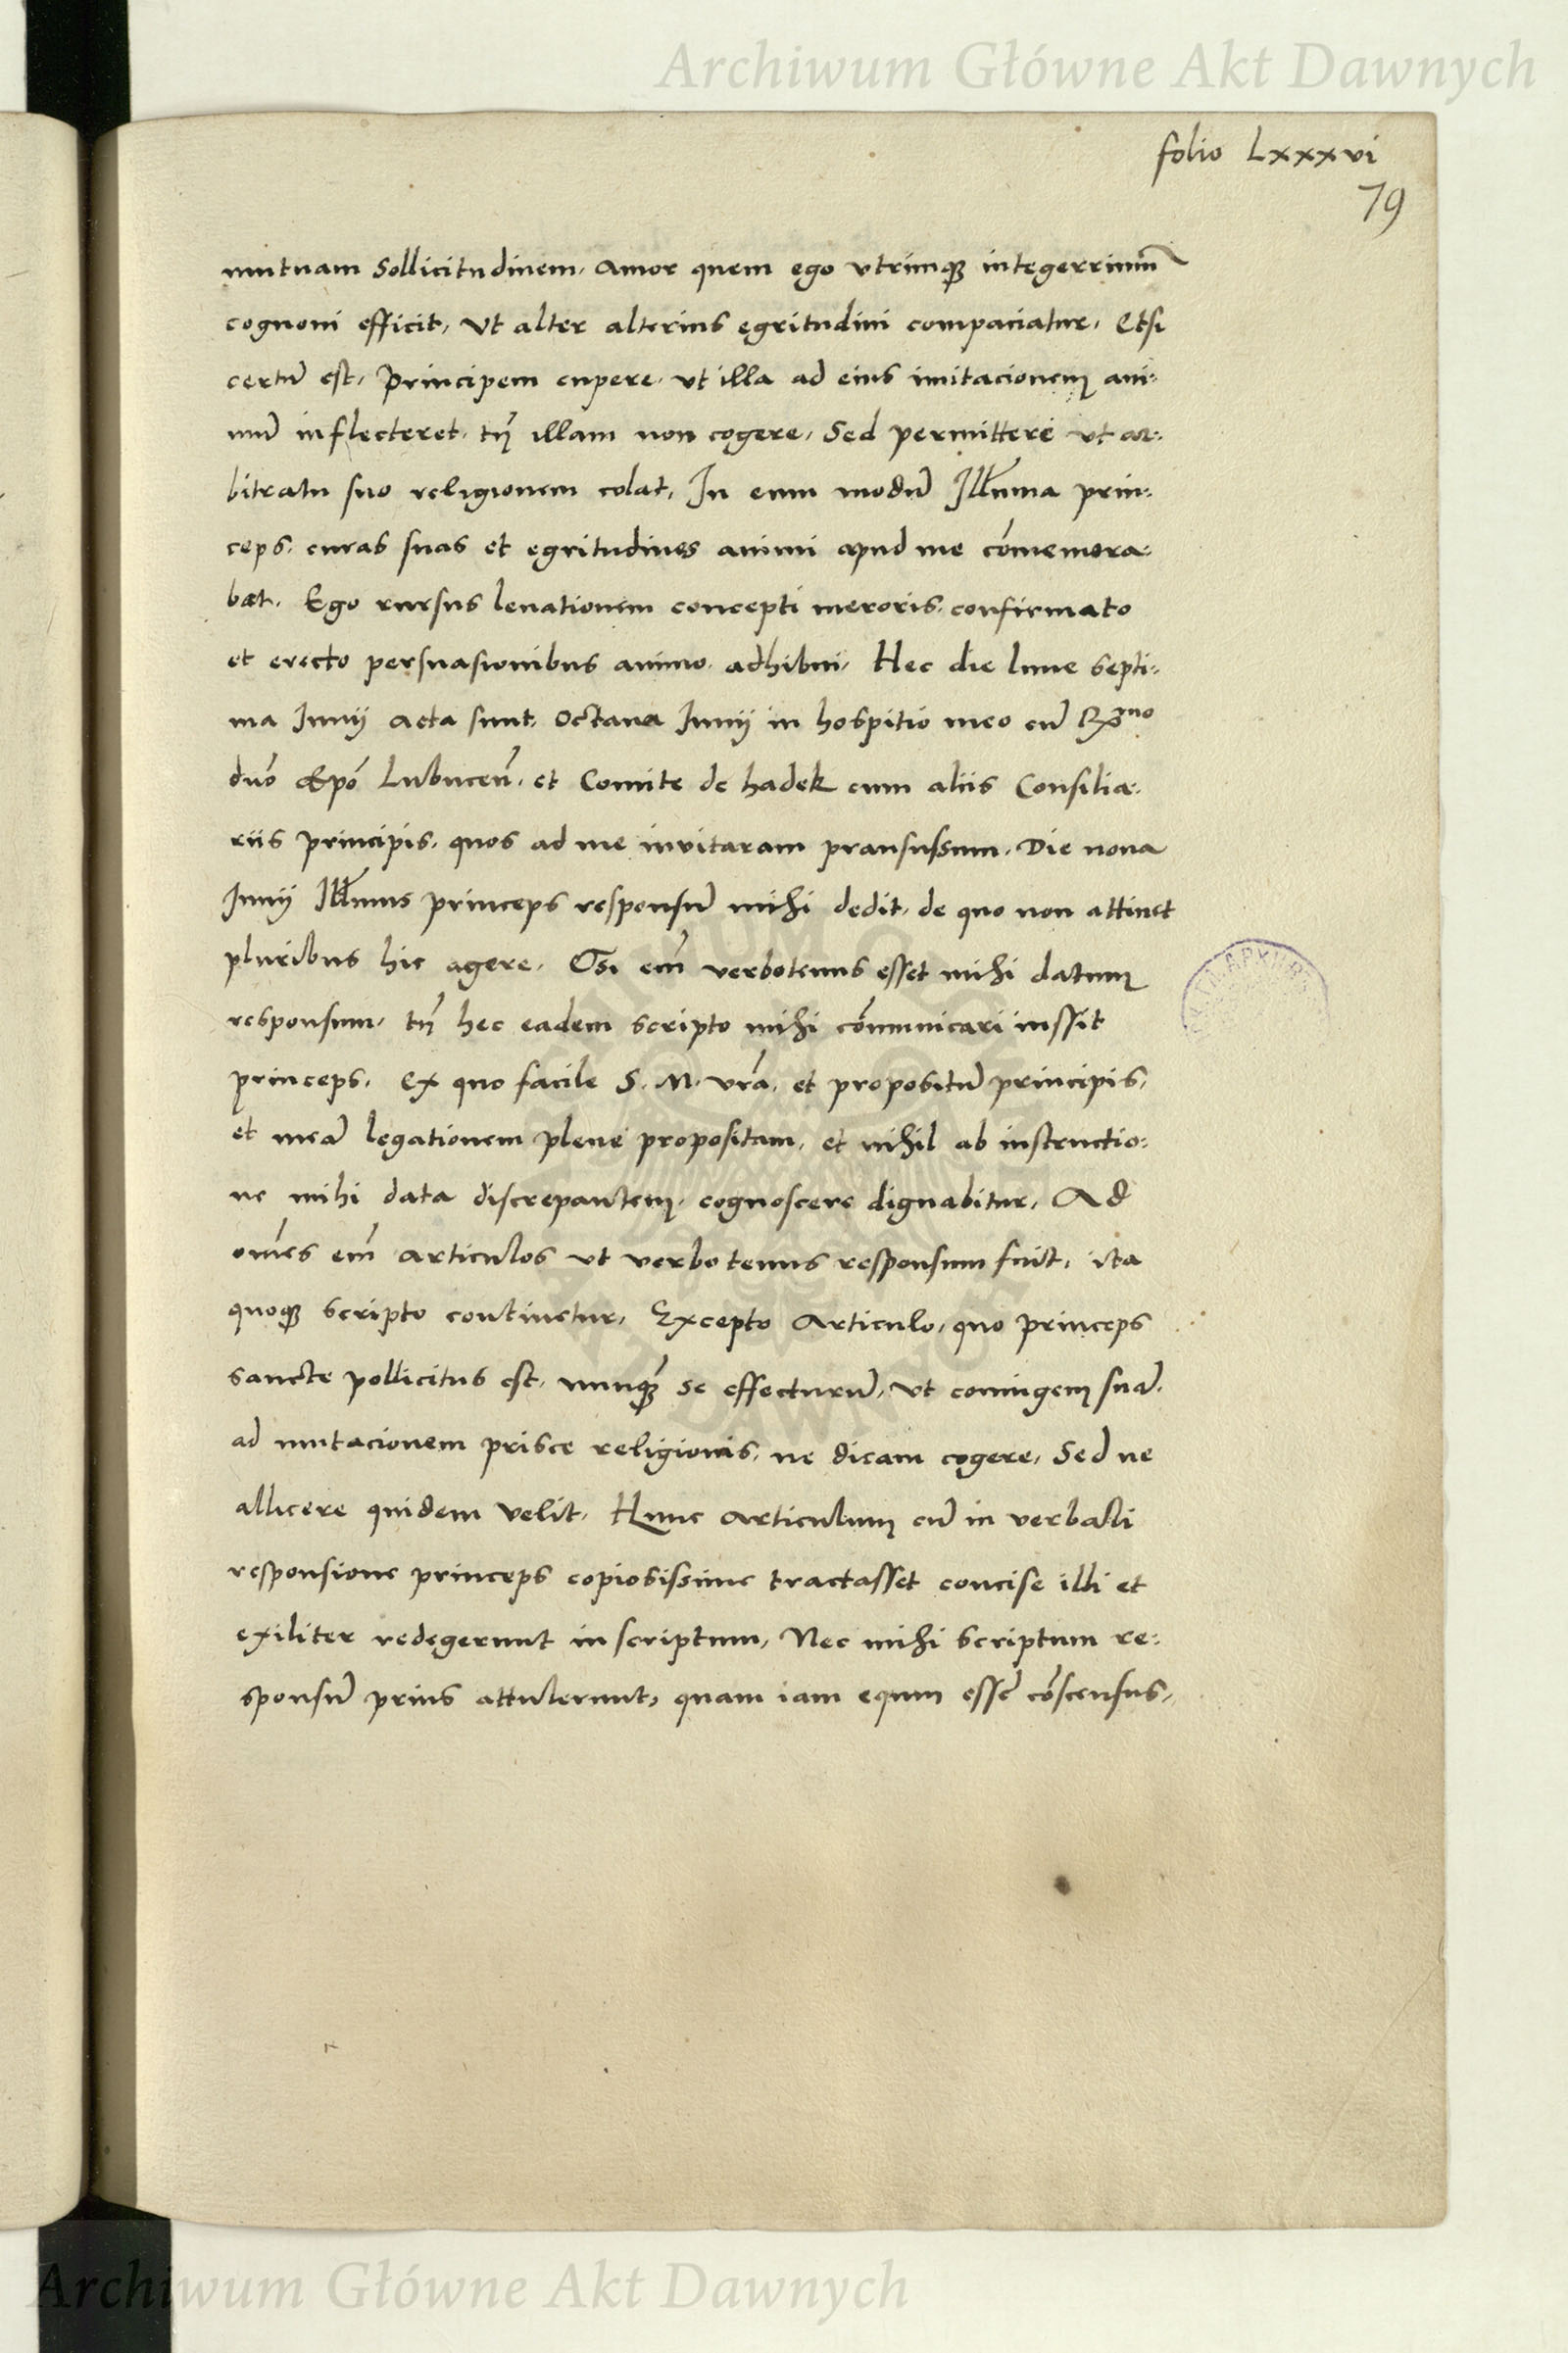 Archiwum Główne Akt Dawnych
folio Lxxxvi
79
mutuam sollicitudinem, Amor quem ego vtrimqꝫ integerrimũ
cognoui efficit, vt alter alterius egritudini compaciatur, Etsi
certũ est, Principem cupere, vt illa ad eius imitacionem ani:
mũ inflecteret, tñ illam non cogere, Sed permittere vt ar:
bitratu suo religionem colat, In eum modũ Illm̃a prin:
ceps, curas suas et egritudines animi apud me cõmemora:
bat, Ego rursus leuationem concepti meroris, confirmato
et erecto persuasionibus animo, adhibui, Hec die lune septi:
ma Junij acta sunt, Octaua Junij in hospitio meo cũ Rx̃mo
dño Ep̃o Lubucen̄, et Comite de hadek cum aliis Consilia:
riis principis, quos ad me inuitaram pransussum, Die nona
Junij Illm̃us princeps responsũ mihi dedit, de quo non attinet
pluribus hic agere, Etsi em̃ verbotenus esset mihi datum
responsum, tñ hec eadem scripto mihi cõmunicari iussit
princeps, Ex quo facile S. M. vrã, et propositũ principis,
et meã legationem plene propositam, et nihil ab instructio:
ne mihi data discrepantem, cognoscere dignabitur, Ad
om̃es em̃ articulos vt verbo tenus responsum fuit, ita
quoqꝫ scripto continetur, Excepto Articulo, quo princeps
sancte pollicitus est, nunqꝫ̃ se effecturũ, vt coniugem suã,
ad mutacionem prisce religionis, ne dicam cogere, Sed ne
allicere quidem velit, Hunc articulum cũ in verbali
responsione princeps copiosissime tractasset concise illi et
exiliter redegerunt in scriptum, Nec mihi scriptum re:
sponsũ prius attulerunt, quam iam equum essẽ cõscensus,
Archiwum Główne Akt Dawnych